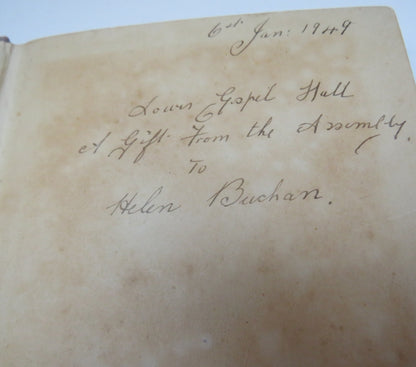 6th Jan: 1949
Lower Gospel Hall
A Gift From the Assembly.
To
Helen Buchan.